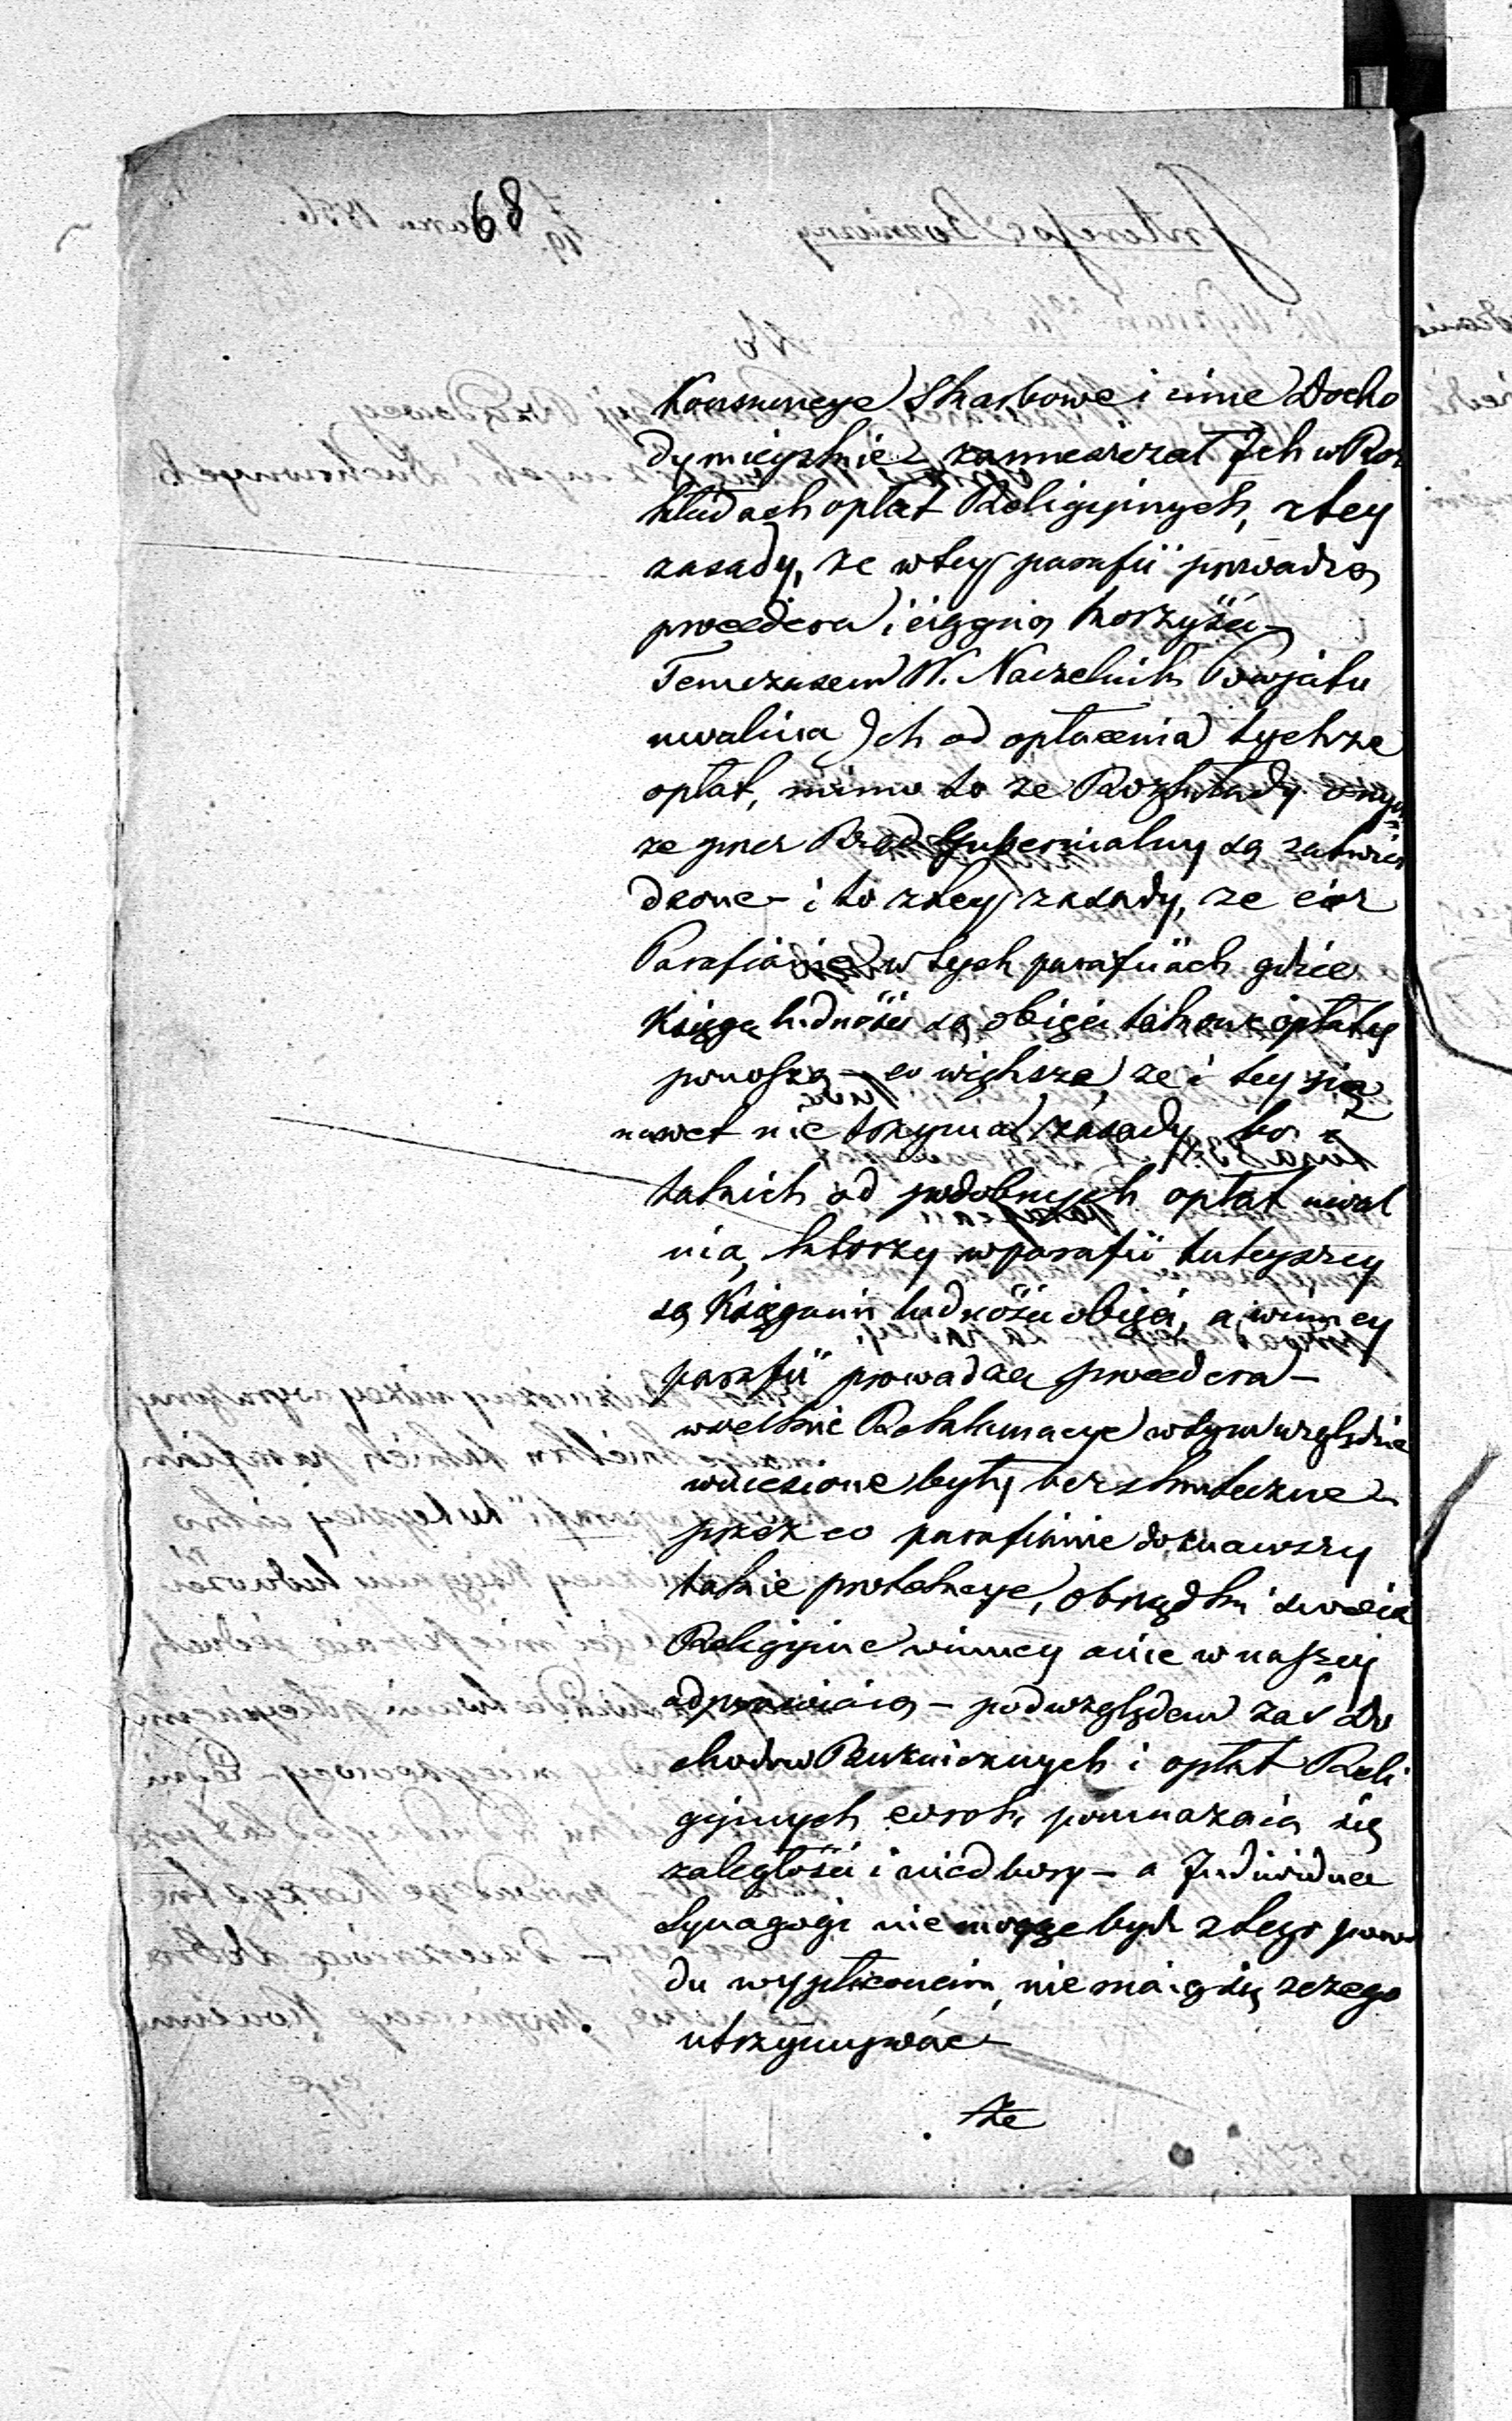 68
Konsumcye Skarbowe i inne Docho
dy mieyskie zamieszczał Ich w Roz
kładach opłat Religijnych, z tey
zasady, że w tey parafii prowadzą
procedera i ciągną korzyści –
Temczasem W. Naczelnik Powiatu
uwalnia Ich od opłacenia tychże
opłat, mimo to że Rozkłady onych
że przez Rząd Gubernialny są zatwier
dzone – i to z tey zasady, że ciż
Parafianie w tych parafiach gdzie
Księgą ludności są obięci takowe opłaty
ponoszą – co większa, że i tey się
nawet nie trzymał zasady, bo i
takich od podobnych opłat uwal
nia, którzy w parafii tuteyszey
są Księgami ludności obięci, a w inney
parafii prowadzą procedera –
wszelkie Reklamacye w tym względzie
wniesione były bezskuteczne –
przez co parafianie doznawszy
takie protekcye, obrządki swoie
Religijne w inney a nie w naszey
odprawiaią – pod względem zaś Do
chodów Bużniczych i opłat Reli
gijnych co rok pomnażaią się
zaległości i niedbory – a Indiwidua
Synagogi nie mogą być z tego powo
du wypłaconemi, nie maią się z czego
utrzymywać –
Że